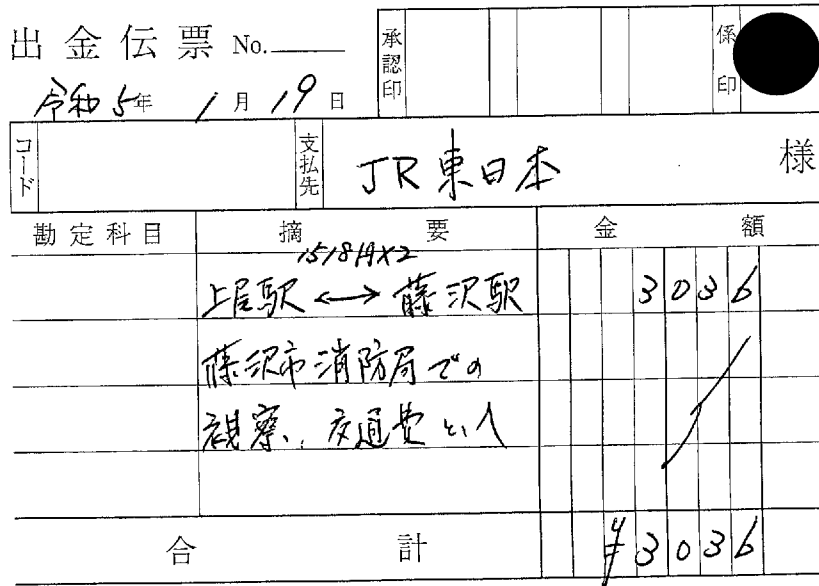 出金伝票 No.
承認印
係印
令和5年 1月19日
コード
支払先
JR東日本 様
勘定科目 摘要 金額
1518円×2
上尾駅 ←→ 藤沢駅 3036
藤沢市消防局での
視察、交通費として
合計 ¥3036